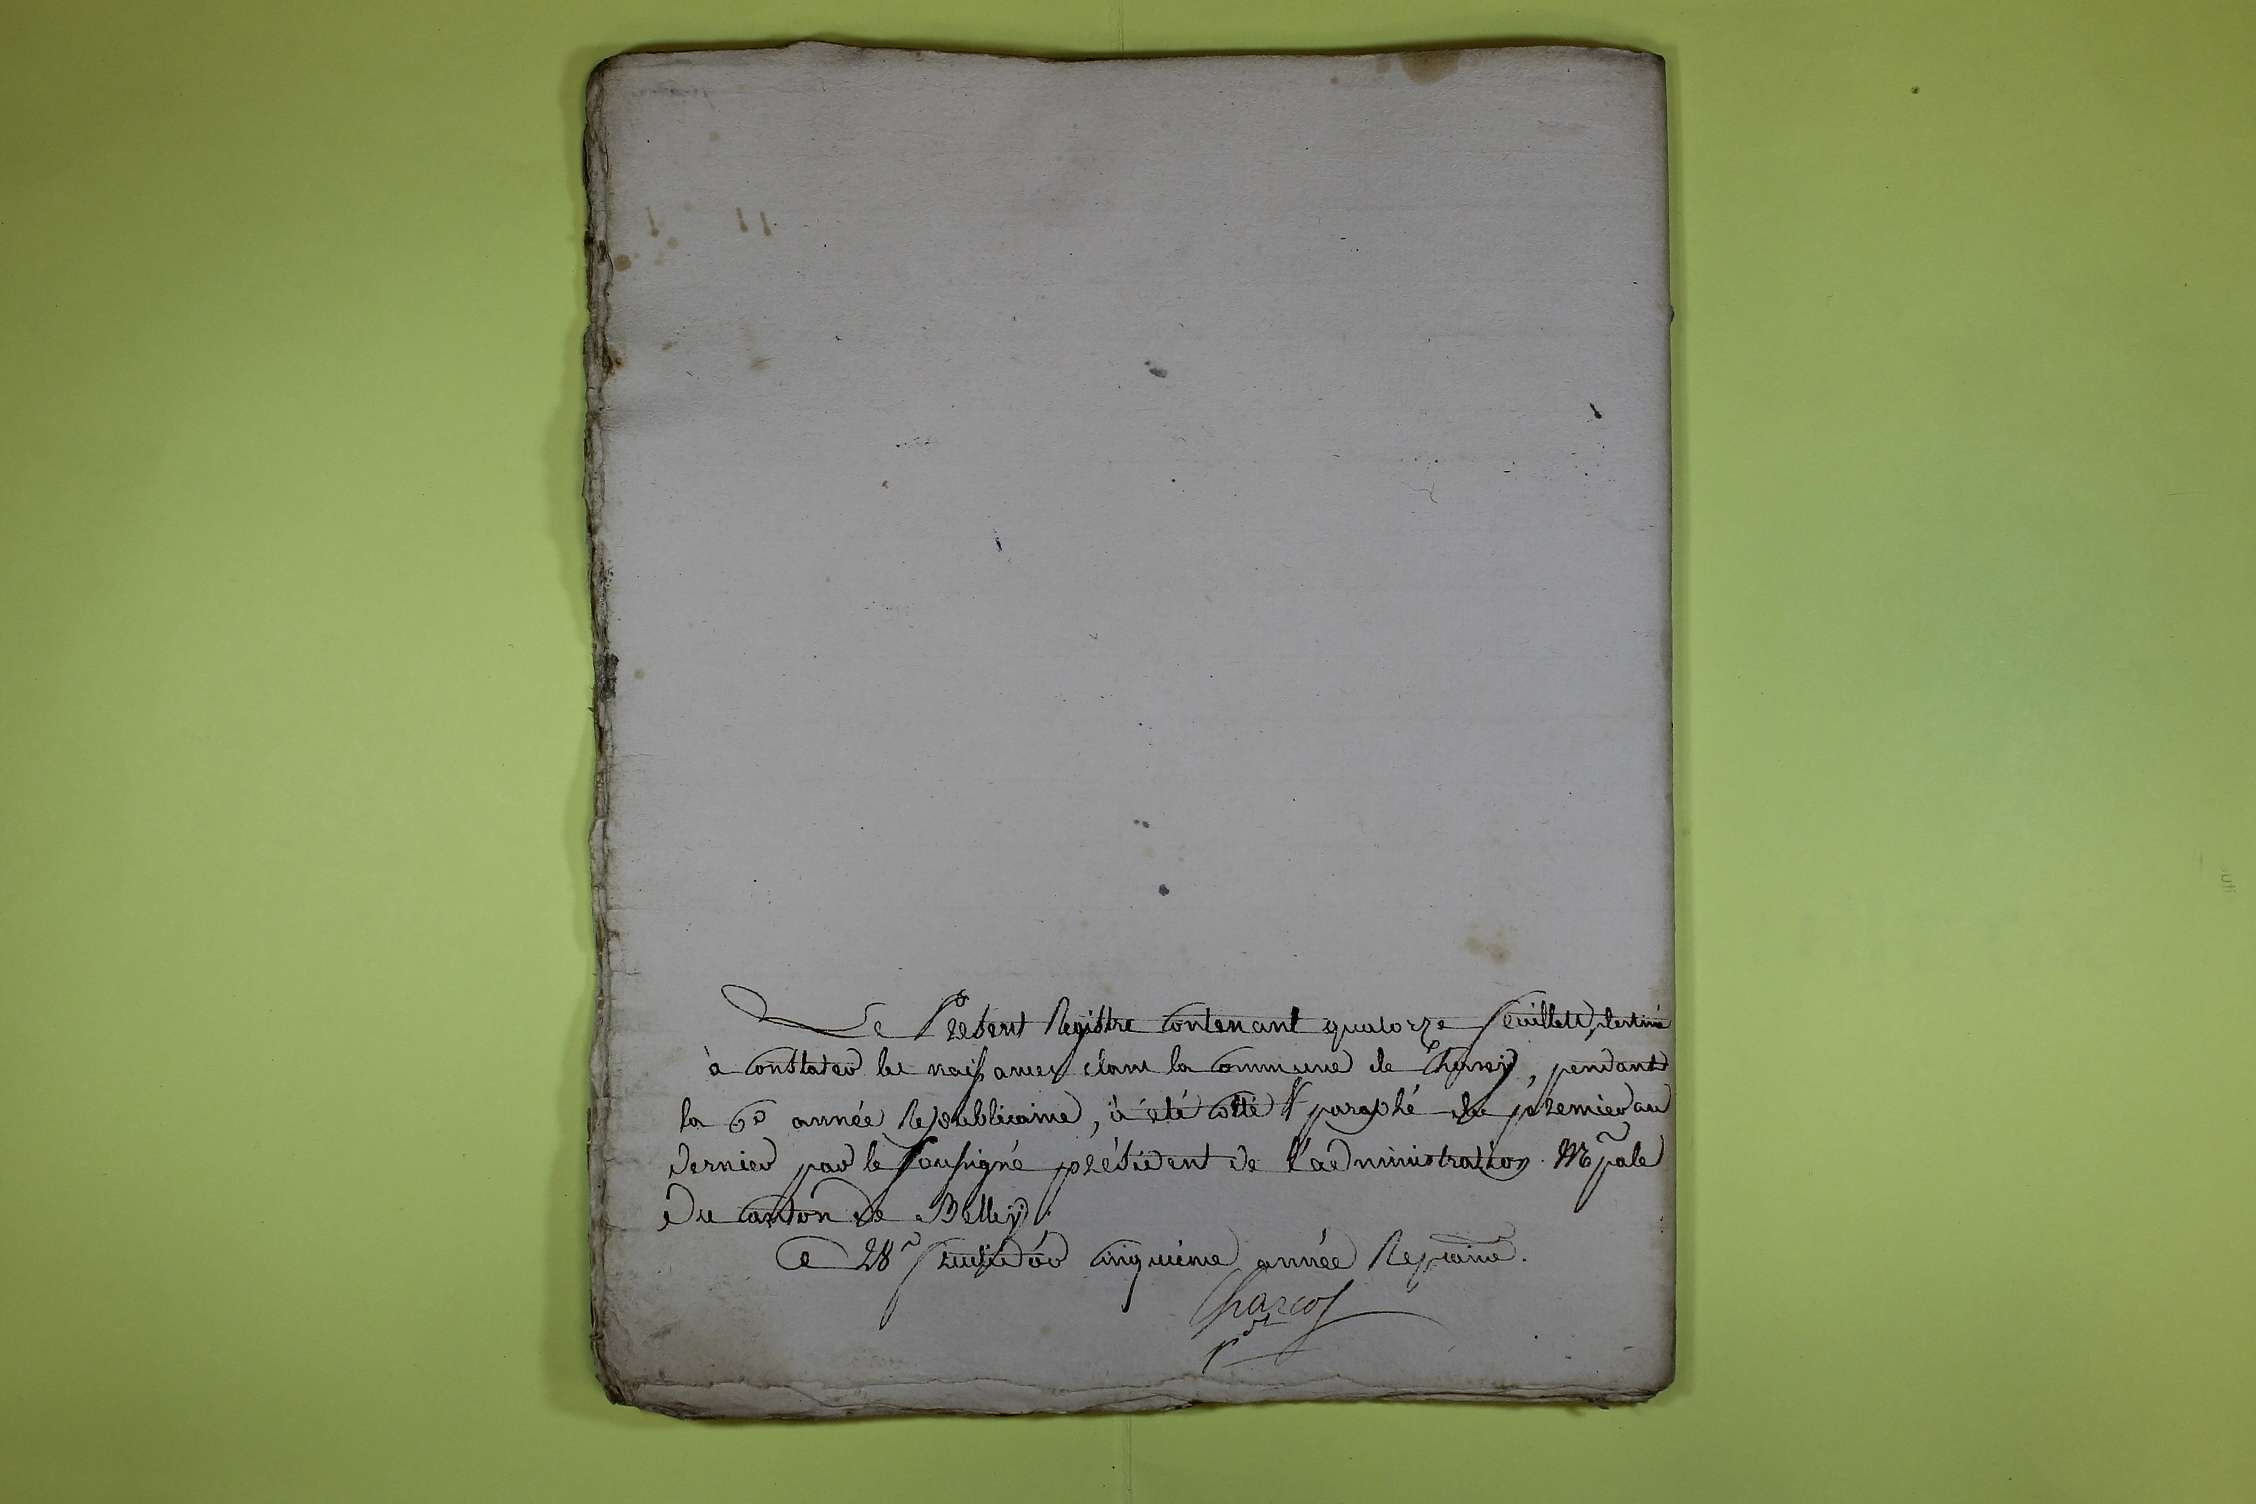 Le Present Registre contenant quatorze feuillets, destiné
à constater les naissances dans la commune de Chazey, pendant
la 6e année Republicaine, à été cotté & paraphé du premier au
dernier par le soussigné président de l'administration Mpale
du canton de Belley.
Ce 28 fructidor cinquieme année Repcaine.
Charcot
pdt